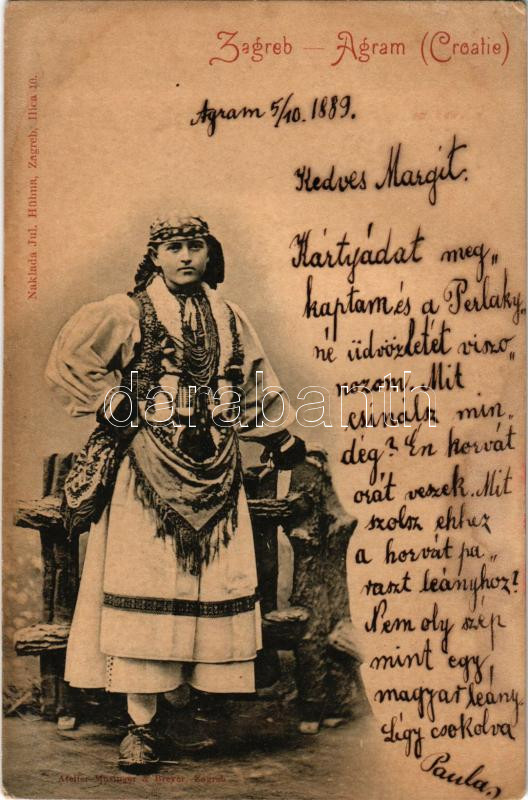 Zagreb — Agram (Croatie)
Agram 5/10. 1889.
Nakladа Jul. Hühna, Zagreb, Ilica 10.
Kedves Margit.
Kártyádat meg„
kaptam és a Perlaky„
né üdvözletét viszo„
nozom. Mit
csinálsz min„
dég? Én horvát
órát veszek. Mit
szolsz ehhez
a horvát pa„
raszt leányhoz?
Nem oly szép
mint egy
magyar leány.
Légy csokolva
Paula,
darabanth
Atelier Mosinger & Breyer, Zagreb